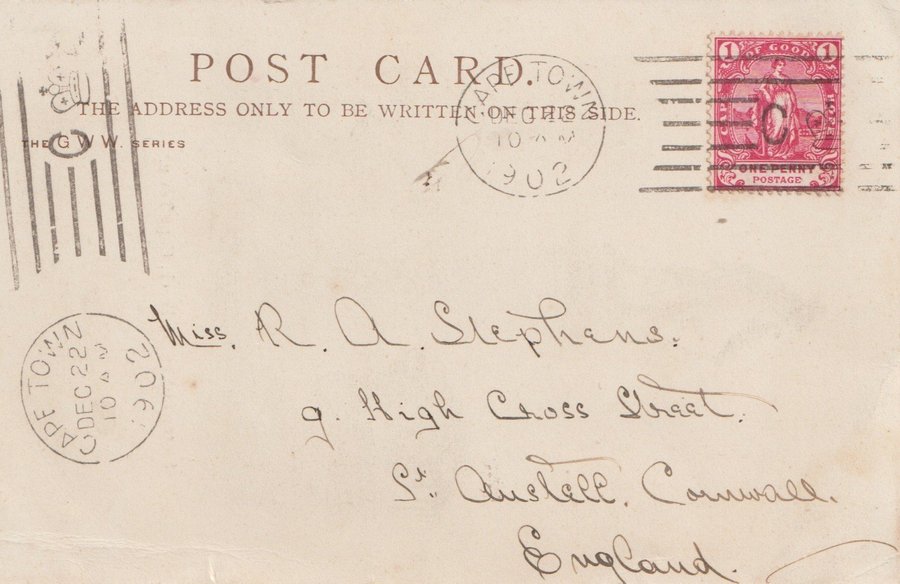 POST CARD.
THE ADDRESS ONLY TO BE WRITTEN ON THIS SIDE.
THE G.W.W. SERIES
CAPE TOWN
10 AM
1902
C
1 OF GOOD 1
ONE PENNY
POSTAGE
C
CAPE TOWN
DEC 22
10 AM
1902
Miss. R. A. Stephens.
9. High Cross Street.
St. Austell, Cornwall.
England.